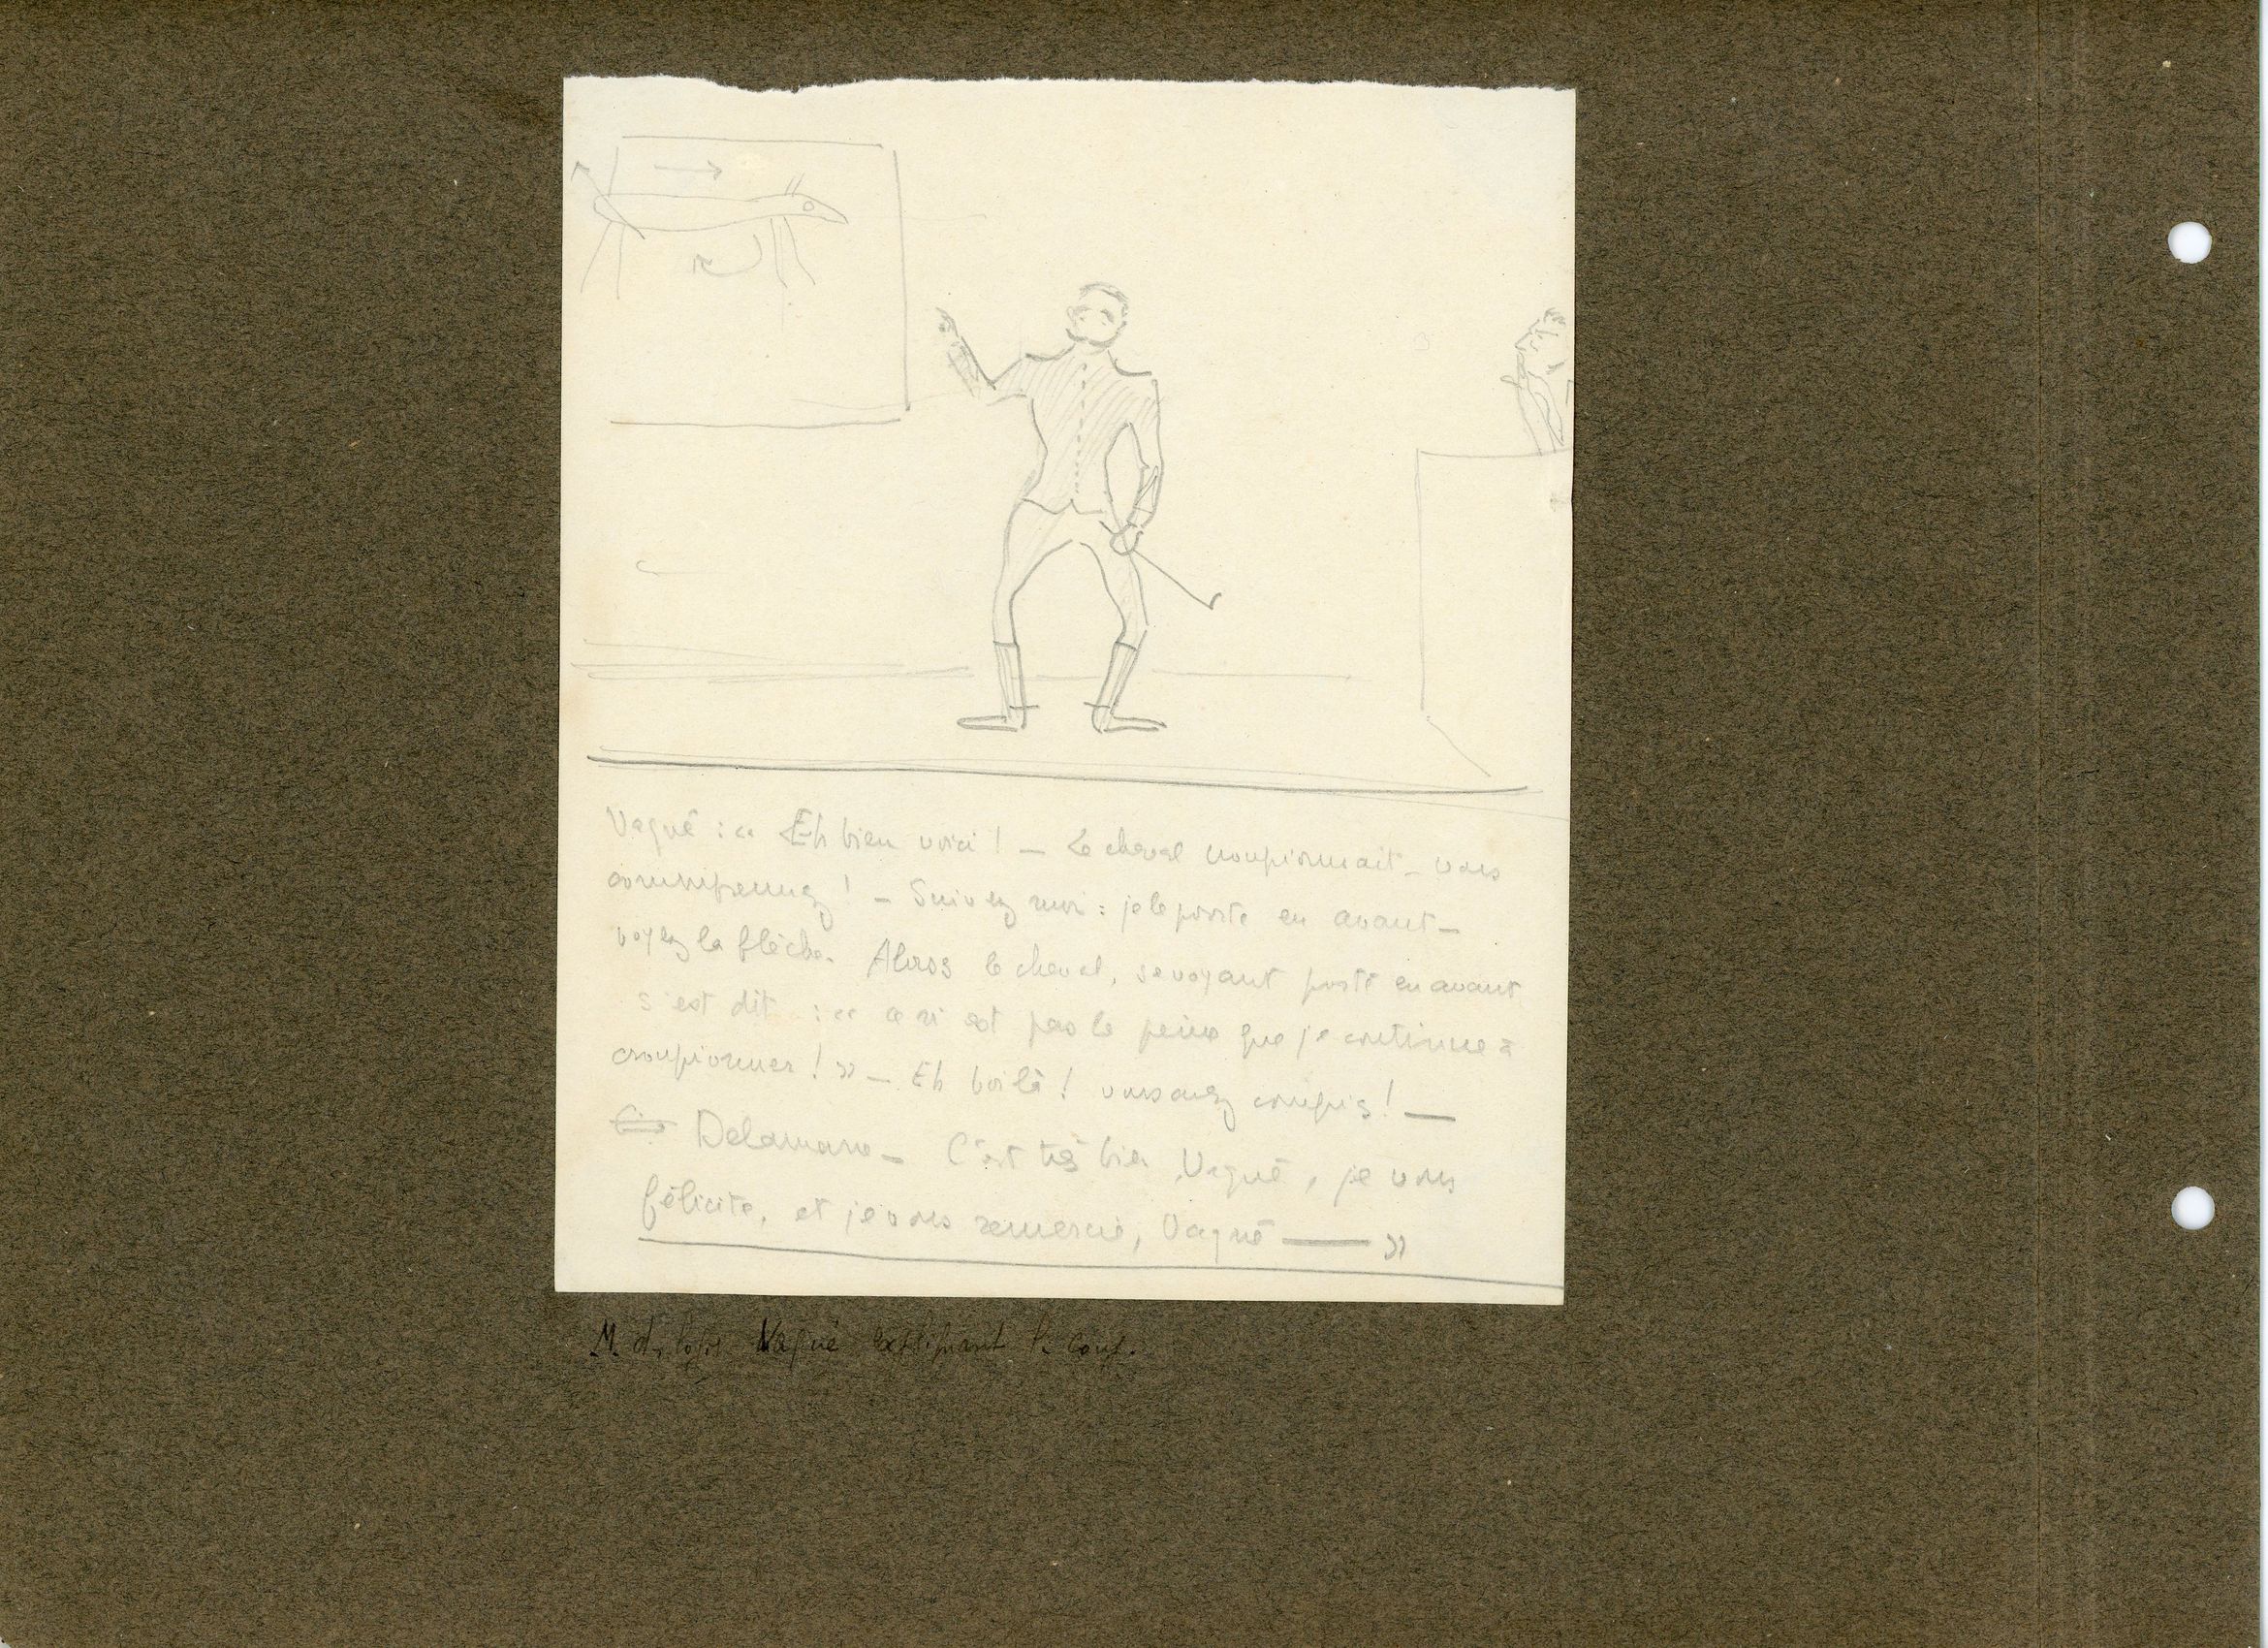 Vagué : « Eh bien voici ! — Le cheval croupionnait — vous
comprenez ! — Suivez moi : je le porte en avant —
voyez la flèche. Alors le cheval, se voyant porté en avant
s'est dit : « ce n'est pas la peine que je continue à
croupionner ! » — Eh voilà ! vous avez compris ! —
Delamare — C'est très bien Vagué, je vous
félicite, et je vous remercie, Vagué — »
M. d. logis Vagué expliquant le coup.